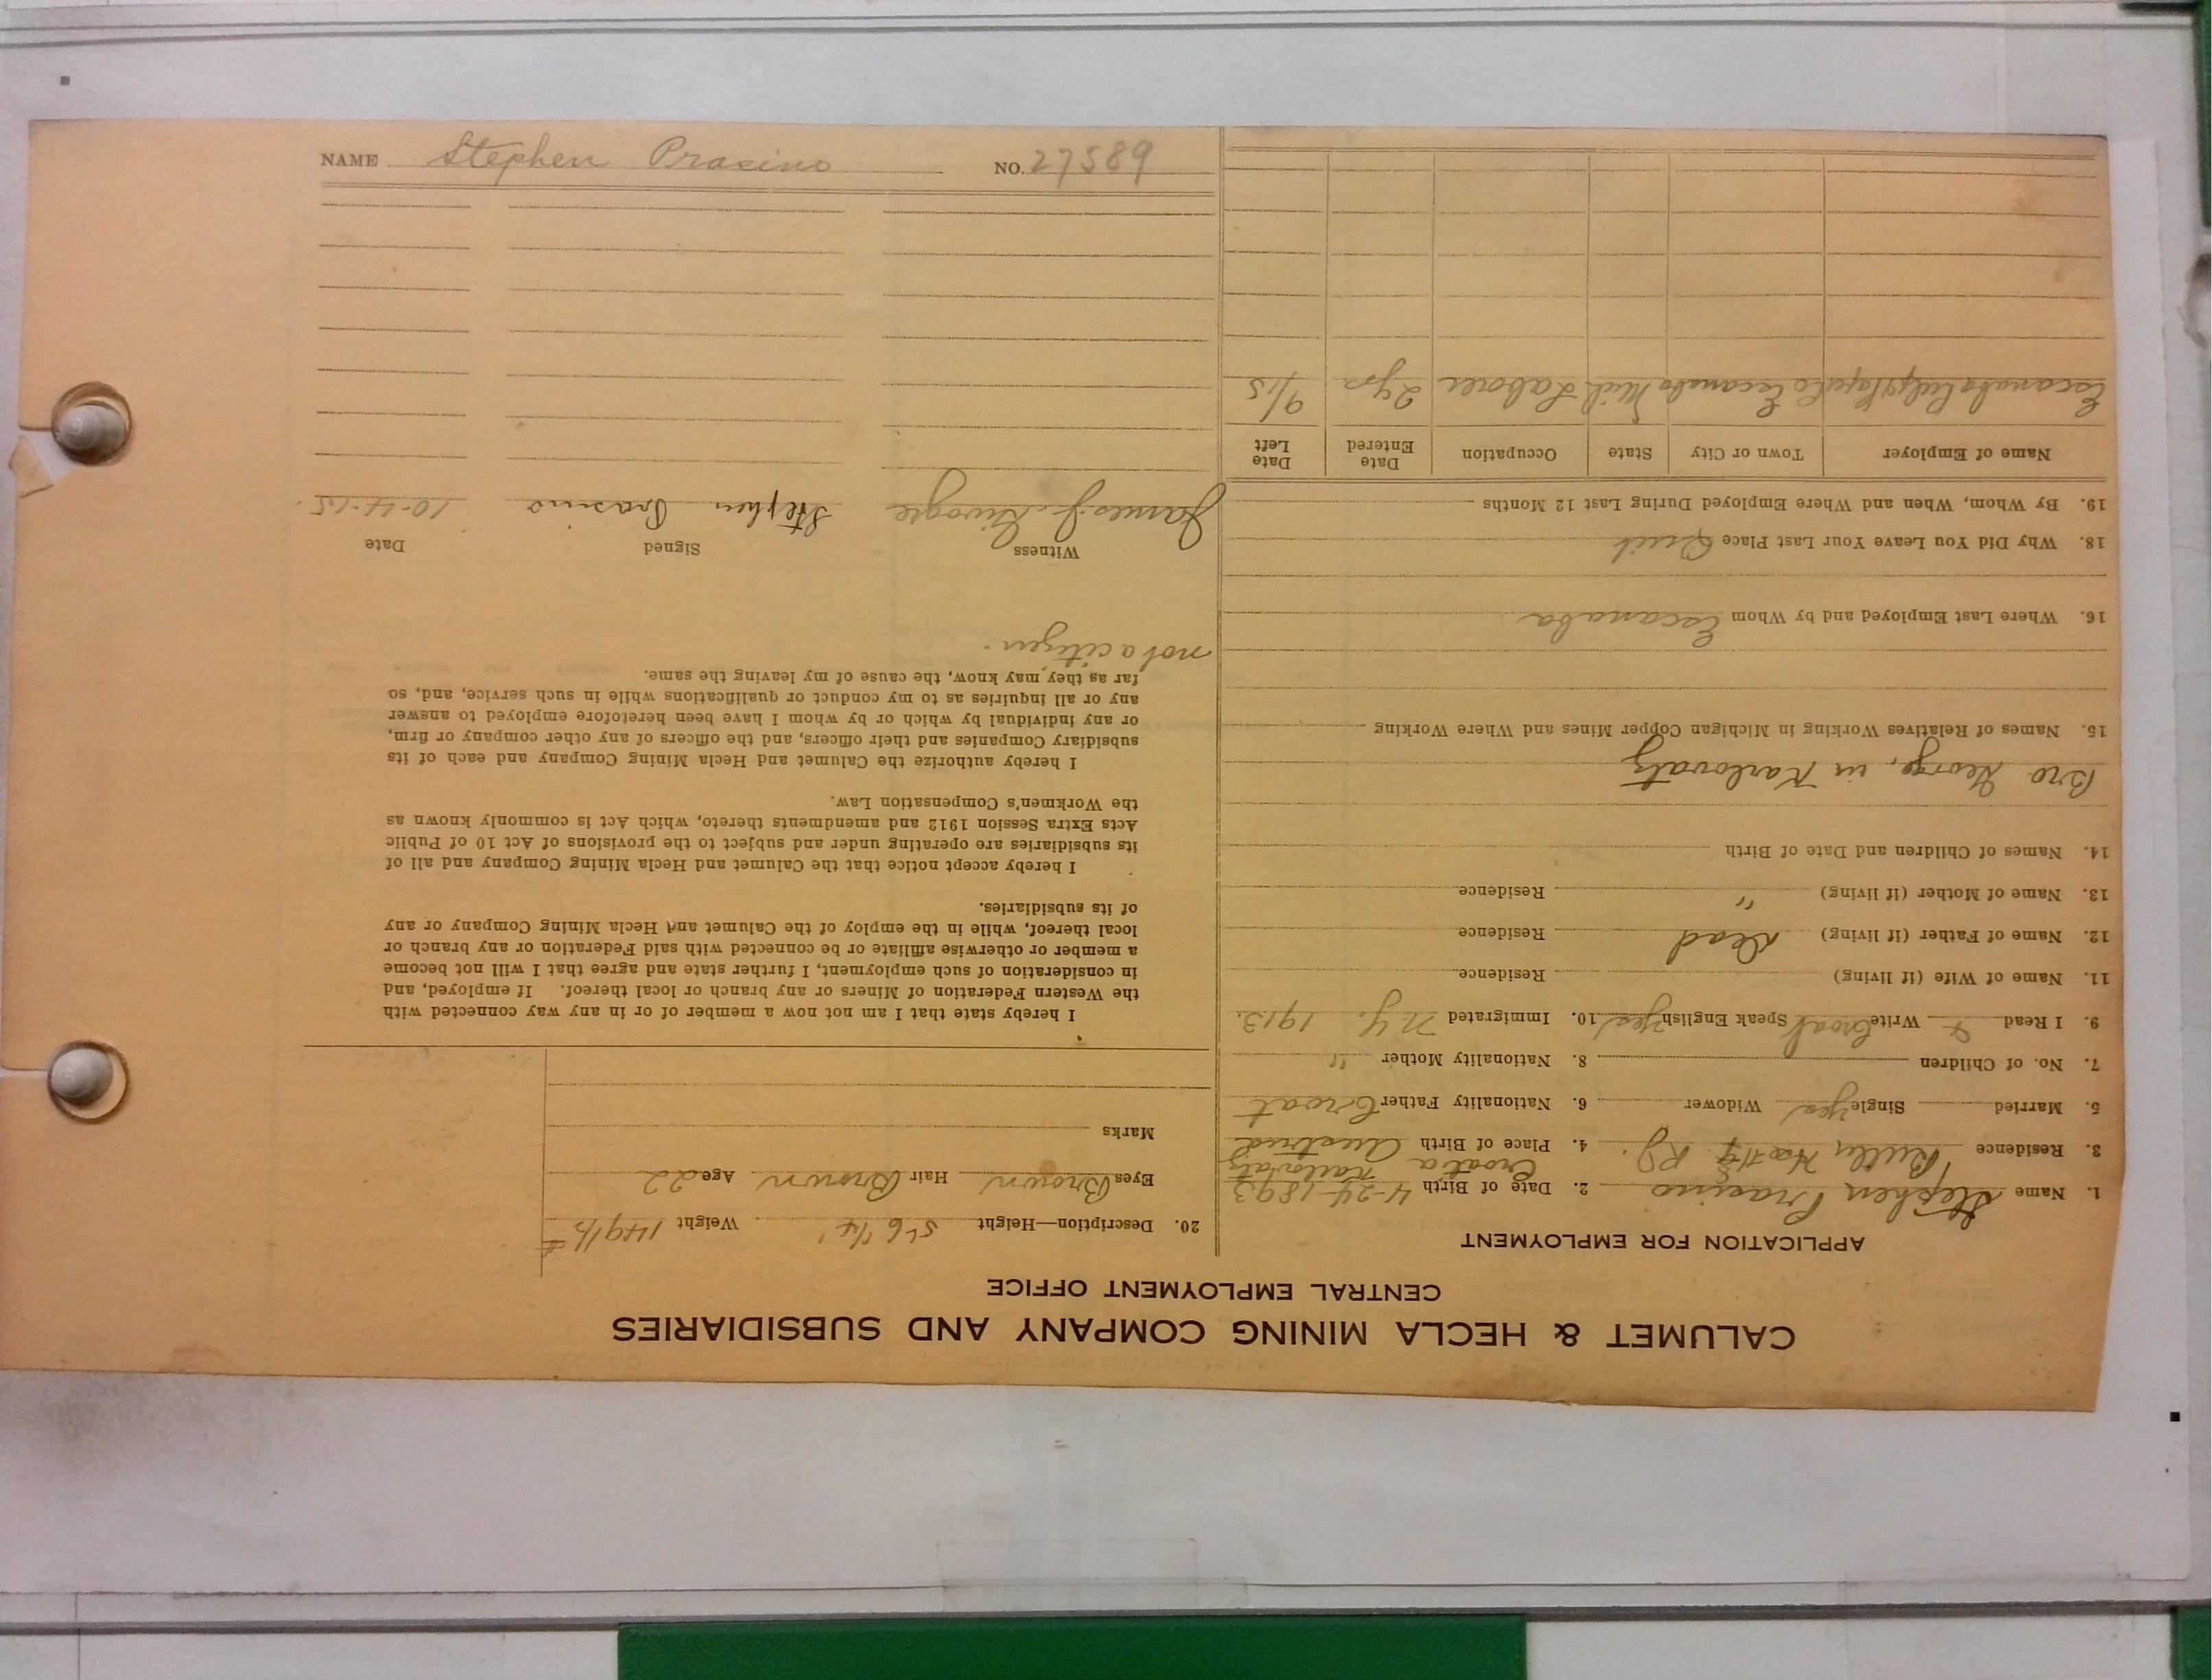 CALUMET & HECLA MINING COMPANY AND SUBSIDIARIES
CENTRAL EMPLOYMENT OFFICE
APPLICATION FOR EMPLOYMENT
1. Name Stephen Prasino 2. Date of Birth 4-24-1893
Croatia Karlovatz
3. Residence 4. Place of Birth Austria
5. Married Single Yes Widower 6. Nationality Father Croat
7. No. of Children 8. Nationality Mother "
9. I Read & Write Croat Speak English Yes 10. Immigrated N.Y. 1913.
11. Name of Wife (if living) Residence
12. Name of Father (if living) Dead Residence
13. Name of Mother (if living) " Residence
14. Names of Children and Date of Birth
Bro George, in Karlovatz
15. Names of Relatives Working in Michigan Copper Mines and Where Working
16. Where Last Employed and by Whom Escanaba
18. Why Did You Leave Your Last Place Quit
19. By Whom, When and Where Employed During Last 12 Months
Name of Employer Town or City State Occupation Date Entered Date Left
Escanaba Pulp & Paper Co Escanaba Mich Laborer 2 yrs 9/15
20. Description—Height 5' 6 1/4" Weight 149 1/2 #
Eyes Brown Hair Brown Age 22
Marks
I hereby state that I am not now a member of or in any way connected with
the Western Federation of Miners or any branch or local thereof. If employed, and
in consideration of such employment, I further state and agree that I will not become
a member or otherwise affiliate or be connected with said Federation or any branch or
local thereof, while in the employ of the Calumet and Hecla Mining Company or any
of its subsidiaries.
I hereby accept notice that the Calumet and Hecla Mining Company and all of
its subsidiaries are operating under and subject to the provisions of Act 10 of Public
Acts Extra Session 1912 and amendments thereto, which Act is commonly known as
the Workmen's Compensation Law.
I hereby authorize the Calumet and Hecla Mining Company and each of its
subsidiary Companies and their officers, and the officers of any other company or firm,
or any individual by which or by whom I have been heretofore employed to answer
any or all inquiries as to my conduct or qualifications while in such service, and, so
far as they may know, the cause of my leaving the same.
not a citizen.
Witness Signed Date
James J. Stephen Prasino 10-4-15.
NAME Stephen Prasino NO. 27589